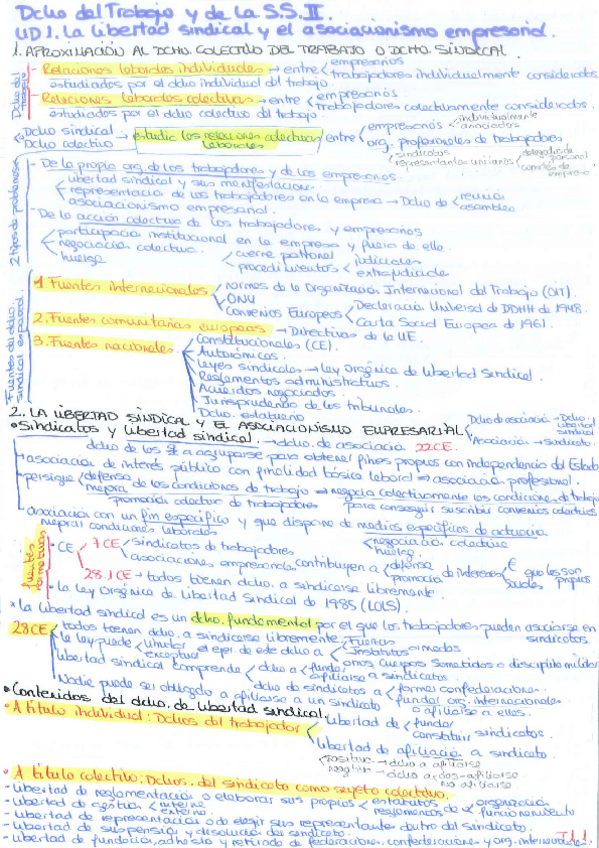 Dcho del Trabajo y de la S.S. II.
UD1. La libertad sindical y el asociacionismo empresarial.
1. APROXIMACIÓN AL DCHO. COLECTIVO DEL TRABAJO O DCHO. SINDICAL
Dcho del trabajo
- Relaciones laborales individuales → entre empresarios
trabajadores individualmente considerados
estudiados por el dcho individual del trabajo.
- Relaciones laborales colectivas → entre empresarios
trabajadores colectivamente considerados.
estudiados por el dcho colectivo del trabajo.
Dcho sindical → estudia las relaciones colectivas laborales entre empresarios individualmente asociados
Dcho colectivo org. profesionales de trabajadores
sindicatos
representantes unitarios delegados de personal
comités de empresa
2 tipos de problemas
- De la propia org. de los trabajadores y de los empresarios
libertad sindical y sus manifestaciones
representación de los trabajadores en la empresa → Dcho de reunión
asamblea
asociacionismo empresarial.
- De la acción colectiva de los trabajadores y empresarios
participación institucional en la empresa y fuera de ella
negociación colectiva. cierre patronal
huelga procedimientos judiciales
extrajudiciales
Fuentes del dcho. sindical español
1. Fuentes internacionales normas de la Organización Internacional del Trabajo (OIT).
ONU
Convenios Europeos Declaración Universal de DDHH de 1948.
Carta Social Europea de 1961.
2. Fuentes comunitarias europeas → Directivas de la UE.
3. Fuentes nacionales Constitucionales (CE).
Autonómicas.
Leyes sindicales → Ley Orgánica de Libertad Sindical
Reglamentos administrativos
Acuerdos negociados.
Jurisprudencia de los tribunales.
Dcho. estatutario
2. LA LIBERTAD SINDICAL Y EL ASOCIACIONISMO EMPRESARIAL Dcho de asociación → Dcho. libertad sindical
Asociación → sindicato
• Sindicatos y libertad sindical. → dcho. de asociación 22CE.
dcho de los a agruparse para obtener fines propios con independencia del Estado
- asociación de interés público con finalidad básica laboral → asociación profesional.
- persigue defensa de las condiciones de trabajo → negocia colectivamente las condiciones de trabajo
mejora
promoción colectiva de trabajadores para conseguir suscribir convenios colectivos
- asociación con un fin específico y que dispone de medios específicos de actuación
mejorar condiciones laborales negociación colectiva
huelga
Fuentes normativas
• CE 7CE sindicatos de trabajadores
asociaciones empresariales contribuyen a defensa
promoción de intereses € que les son
sociales propios
28.1 CE → todos tienen dcho. a sindicarse libremente.
• la Ley Orgánica de Libertad Sindical de 1985 (LOLS).
* La libertad sindical es un dcho. fundamental por el que los trabajadores pueden asociarse en sindicatos.
28CE todos tienen dcho. a sindicarse libremente.
la ley puede limitar
exceptuar el ejer de este dcho a Fuerzas
Institutos armados
o nos Cuerpos sometidos a disciplina militar
libertad sindical comprende dcho a fundar
afiliarse a sindicatos
dcho de sindicatos a formar confederaciones.
fundar org. internacionales
o afiliarse a ellas.
Nadie puede ser obligado a afiliarse a un sindicato
• Contenidos del dcho. de libertad sindical.
• A título individual: Dchos del trabajador Libertad de fundar
constituir sindicatos.
Libertad de afiliación a sindicato
positiva → dcho a afiliarse
negativa → dcho a des-afiliarse
no afiliarse
• A título colectivo: Dchos. del sindicato como sujeto colectivo.
- Libertad de reglamentación o elaborar sus propios estatutos
reglamentos de organización
funcionamiento
- Libertad de gestión interna
externa.
- Libertad de representación o de elegir sus representantes dentro del sindicato.
- Libertad de suspensión y disolución del sindicato.
- Libertad de fundación, adhesión y retirada de federaciones, confederaciones y org. internacionales.
T1 1.